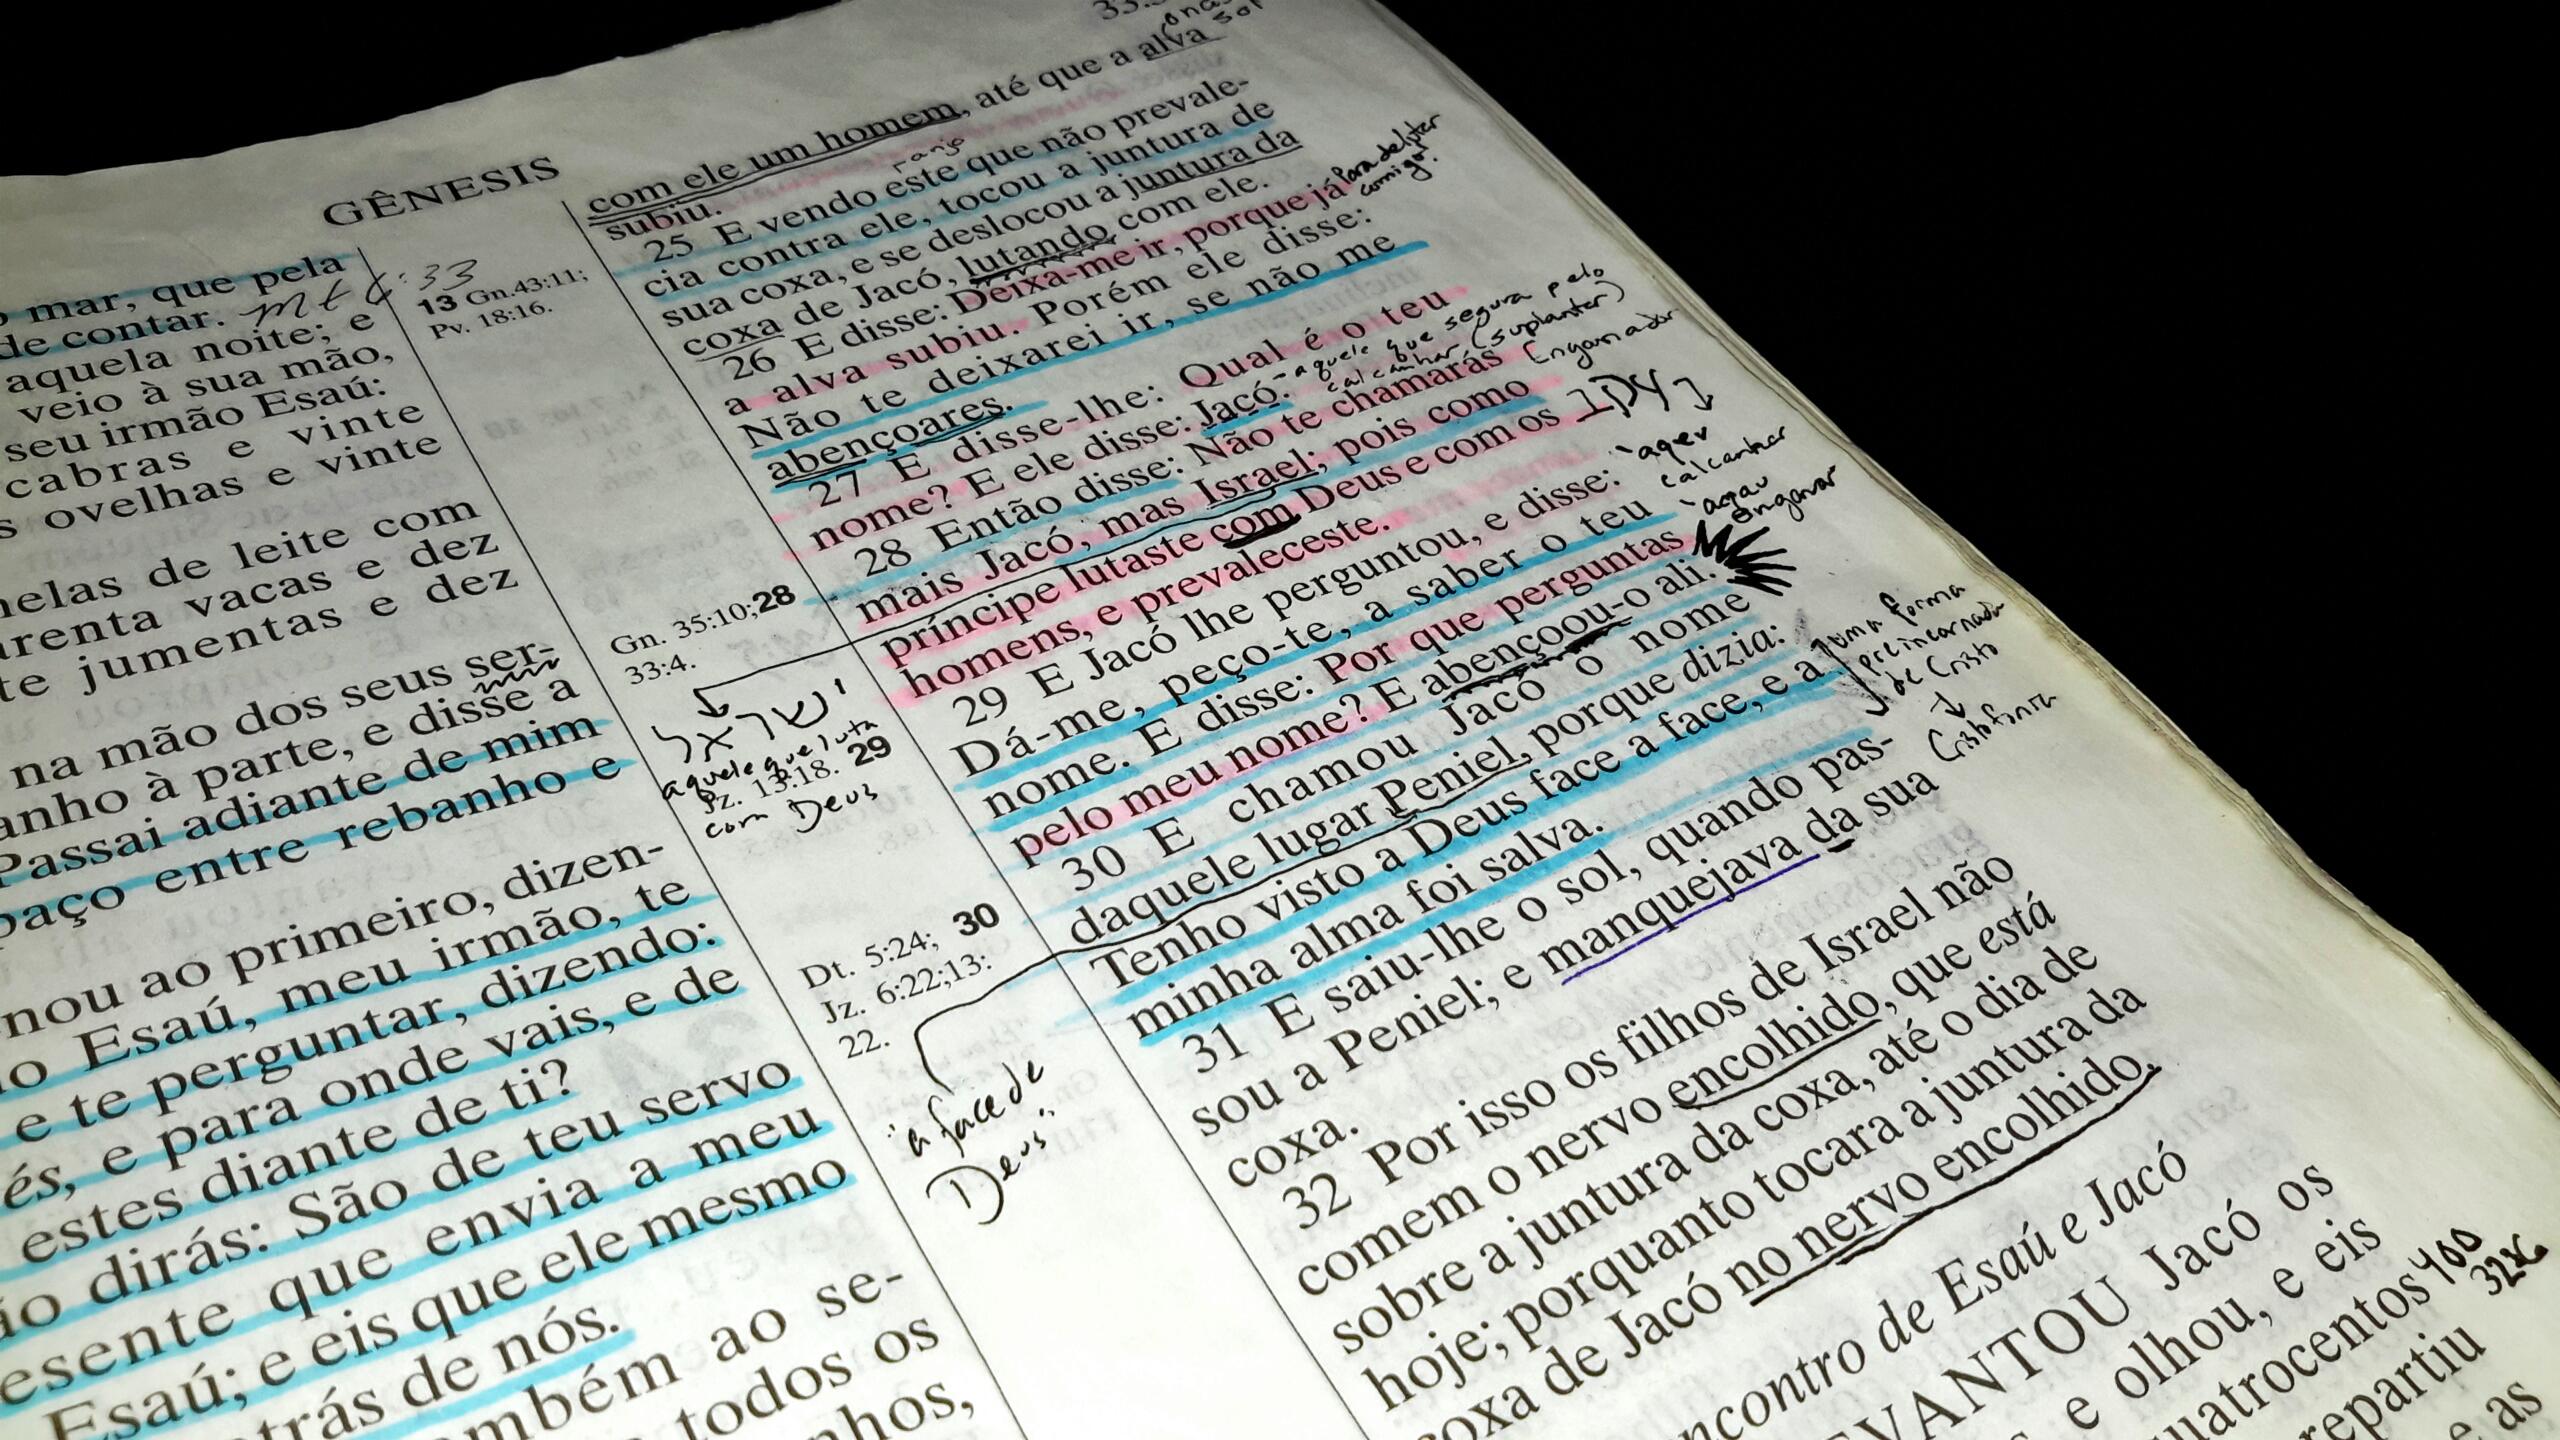 GÊNESIS
mar, que pela
de contar.
aquela noite; e
veio à sua mão,
seu irmão Esaú:
cabras e vinte
ovelhas e vinte
de leite com
vacas e dez
jumentas e dez
na mão dos seus ser-
à parte, e disse a
Passai adiante de mim
entre rebanho e
ao primeiro, dizen-
Esaú, meu irmão, te
e te perguntar, dizendo:
és, e para onde vais, e de
estes diante de ti?
dirás: São de teu servo
que envia a meu
Esaú; e eis que ele mesmo
de nós.
ao se-
todos os
13 Gn.43:11;
Pv. 18:16.
Gn. 35:10;28
33:4.
ישראל
aquele que luta
Jz. 13:18. 29
com Deus
Dt. 5:24; 30
Jz. 6:22;13:
22.
"a face de
Deus"
com ele um homem, até que a alva
subiu.
25 E vendo este que não prevale-
cia contra ele, tocou a juntura de
sua coxa, e se deslocou a juntura da
coxa de Jacó, lutando com ele.
26 E disse: Deixa-me ir, porque já
a alva subiu. Porém ele disse:
Não te deixarei ir, se não me
abençoares.
27 E disse-lhe: Qual é o teu
nome? E ele disse: Jacó.
28 Então disse: Não te chamarás
mais Jacó, mas Israel; pois como
príncipe lutaste com Deus e com os
homens, e prevaleceste.
29 E Jacó lhe perguntou, e disse:
Dá-me, peço-te, a saber o teu
nome. E disse: Por que perguntas
pelo meu nome? E abençoou-o ali.
30 E chamou Jacó o nome
daquele lugar Peniel, porque dizia:
Tenho visto a Deus face a face, e a
minha alma foi salva.
31 E saiu-lhe o sol, quando pas-
sou a Peniel; e manquejava da sua
coxa.
32 Por isso os filhos de Israel não
comem o nervo encolhido, que está
sobre a juntura da coxa, até o dia de
hoje; porquanto tocara a juntura da
coxa de Jacó no nervo encolhido.
de Esaú e Jacó
Jacó os
e olhou, e eis
repartiu
e as
- aquele que segura pelo
calcanhar (suplanter)
Enganador
calcanhar
enganar
uma forma
preincarnada
de Cristo
Cristofania
400